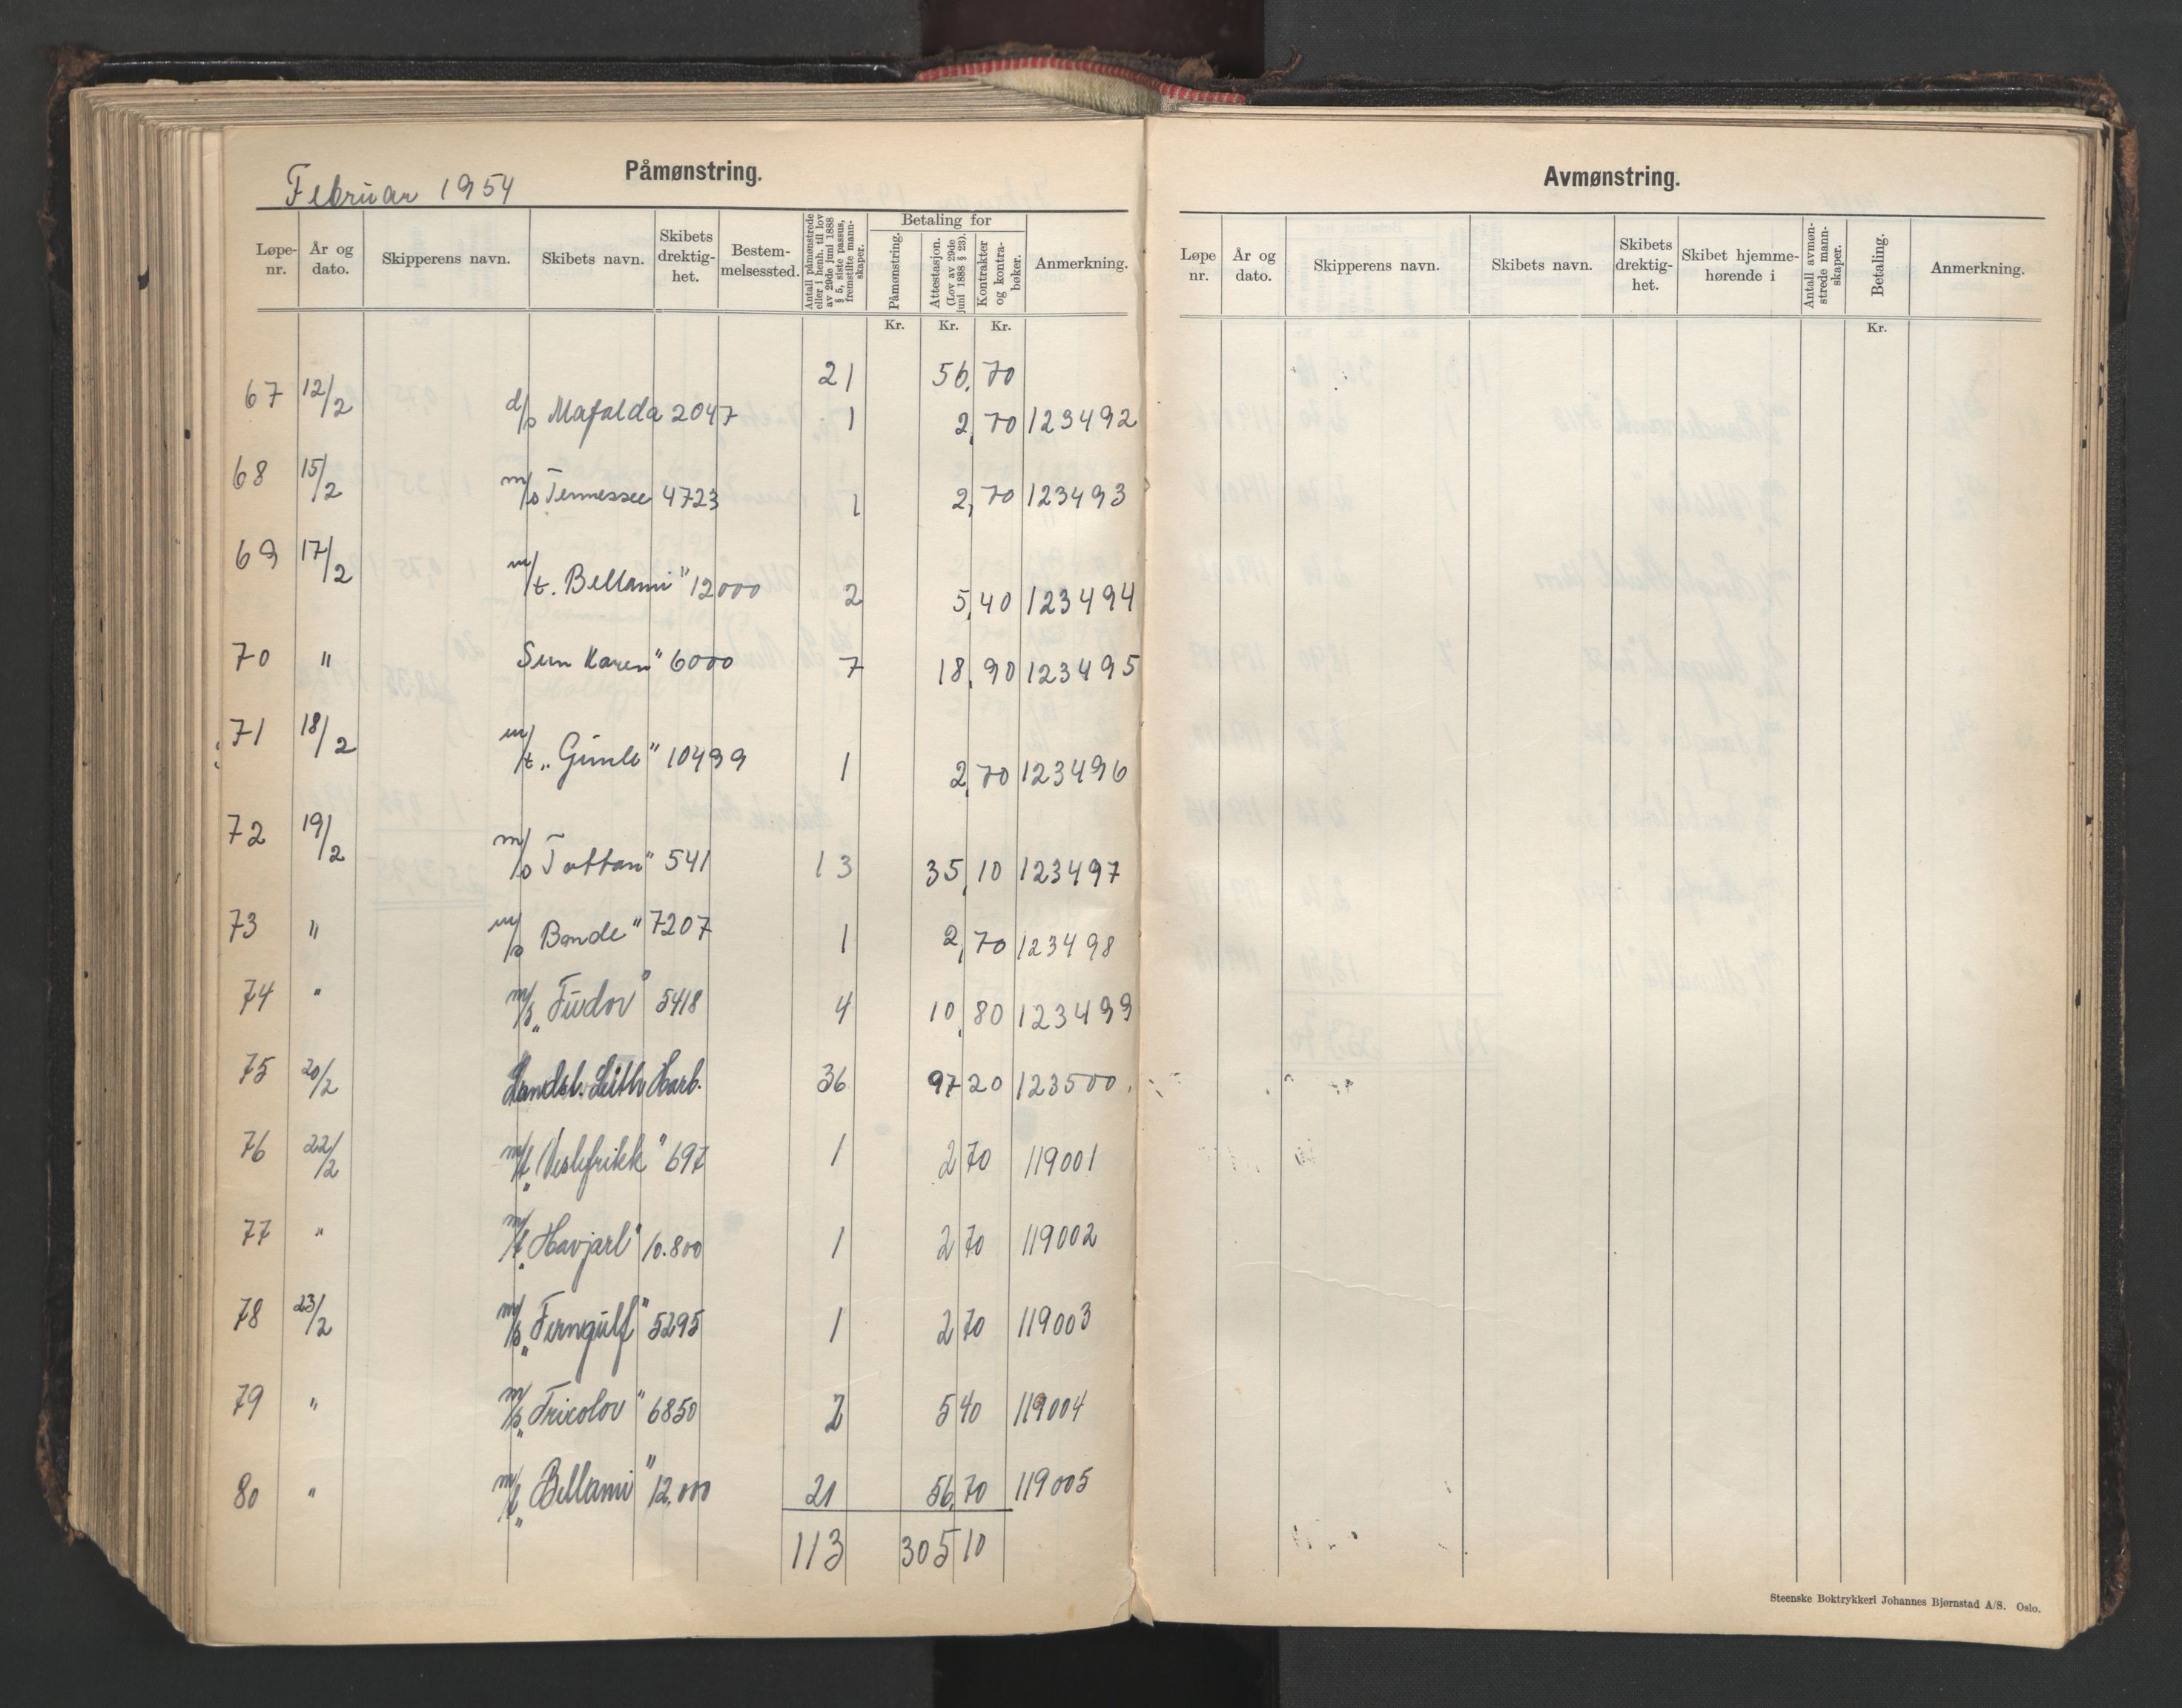 Februar 1954
Påmønstring.
Løpe-nr. År og dato. Skipperens navn. Skibets navn. Skibets drektig-het. Bestem-melsessted. Antall påmønstrede eller i henh. til lov av 29de juni 1888 § 5, siste passus, fremstilte mann-skaper. Betaling for Påmønstring. Attestasjon. (Lov av 29de juni 1888 § 23). Kontrakter og kontra-bøker. Anmerkning.
Kr. Kr. Kr.
21 56,70
67 12/2 d/s Mafalda 2047 1 2,70 123492
68 15/2 m/s Tennessee 4723 1 2,70 123493
69 17/2 m/t. Bellami" 12000 2 5,40 123494
70 " Sun Karen" 6000 7 18,90 123495
71 18/2 m/t „Gimle" 10499 1 2,70 123496
72 19/2 m/s Tottan" 541 13 35,10 123497
73 " m/s Bonde" 7207 1 2,70 123498
74 " m/s „Tudor" 5418 4 10,80 123499
75 20/2 Landst. Leith Harb. 36 97 20 123500.
76 22/2 m/t „Veslefrikk" 697 1 2 70 119001
77 " m/t „Havjarl" 10.800 1 2 70 119002
78 23/2 m/s „Ferngulf" 5295 1 2 70 119003
79 " m/s „Tricolor" 6850 2 5 40 119004
80 " m/t „Bellami" 12.000 21 56,70 119005
113 305 10
Avmønstring.
Løpe nr. År og dato. Skipperens navn. Skibets navn. Skibets drektig-het. Skibet hjemme-hørende i Antall avmøn-strede mann-skaper. Betaling. Anmerkning.
Kr.
Steenske Boktrykkeri Johannes Bjørnstad A/S. Oslo.